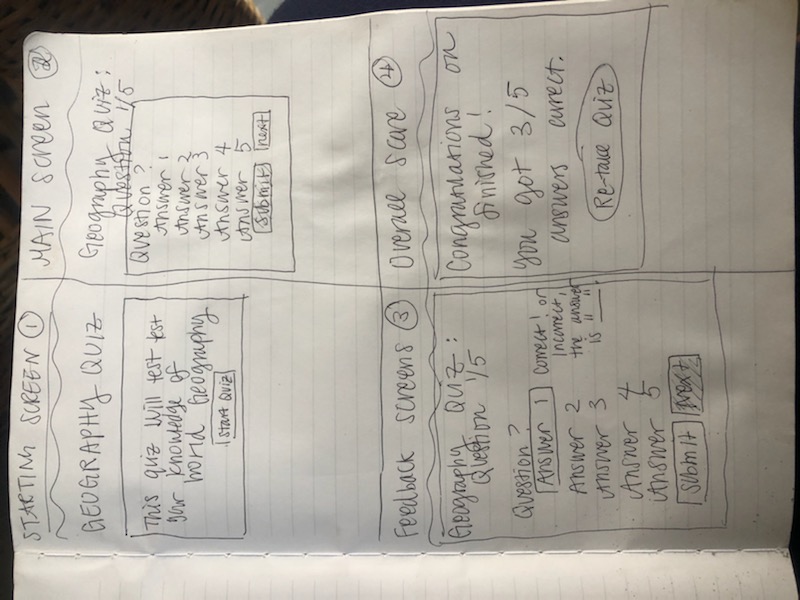 STARTING SCREEN 1
GEOGRAPHY QUIZ
This quiz will test test
your knowledge of
world Geography
Start Quiz
MAIN Screen 2
Geography Quiz:
Question 1/5
Question?
Answer 1
Answer 2
Answer 3
Answer 4
Answer 5
Submit next
Feedback screens 3
Geography Quiz:
Question 1/5
Question?
Answer 1 Correct! or
Incorrect,
Answer 2 the answer
Answer 3 is "___"
Answer 4
Answer 5
Submit Next
Overall score 4
Congratulations on
finished!
you got 3/5
answers correct.
Re-take Quiz